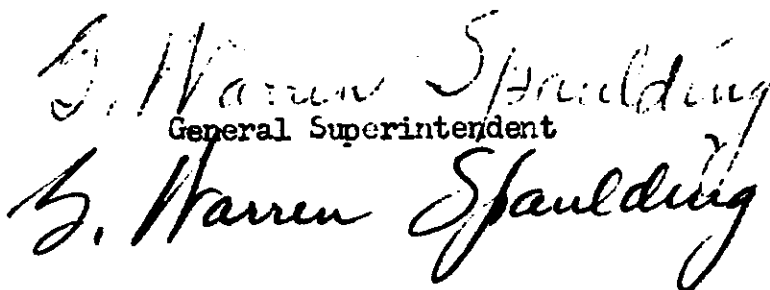 G. Warren Spaulding
General Superintendent
G. Warren Spaulding